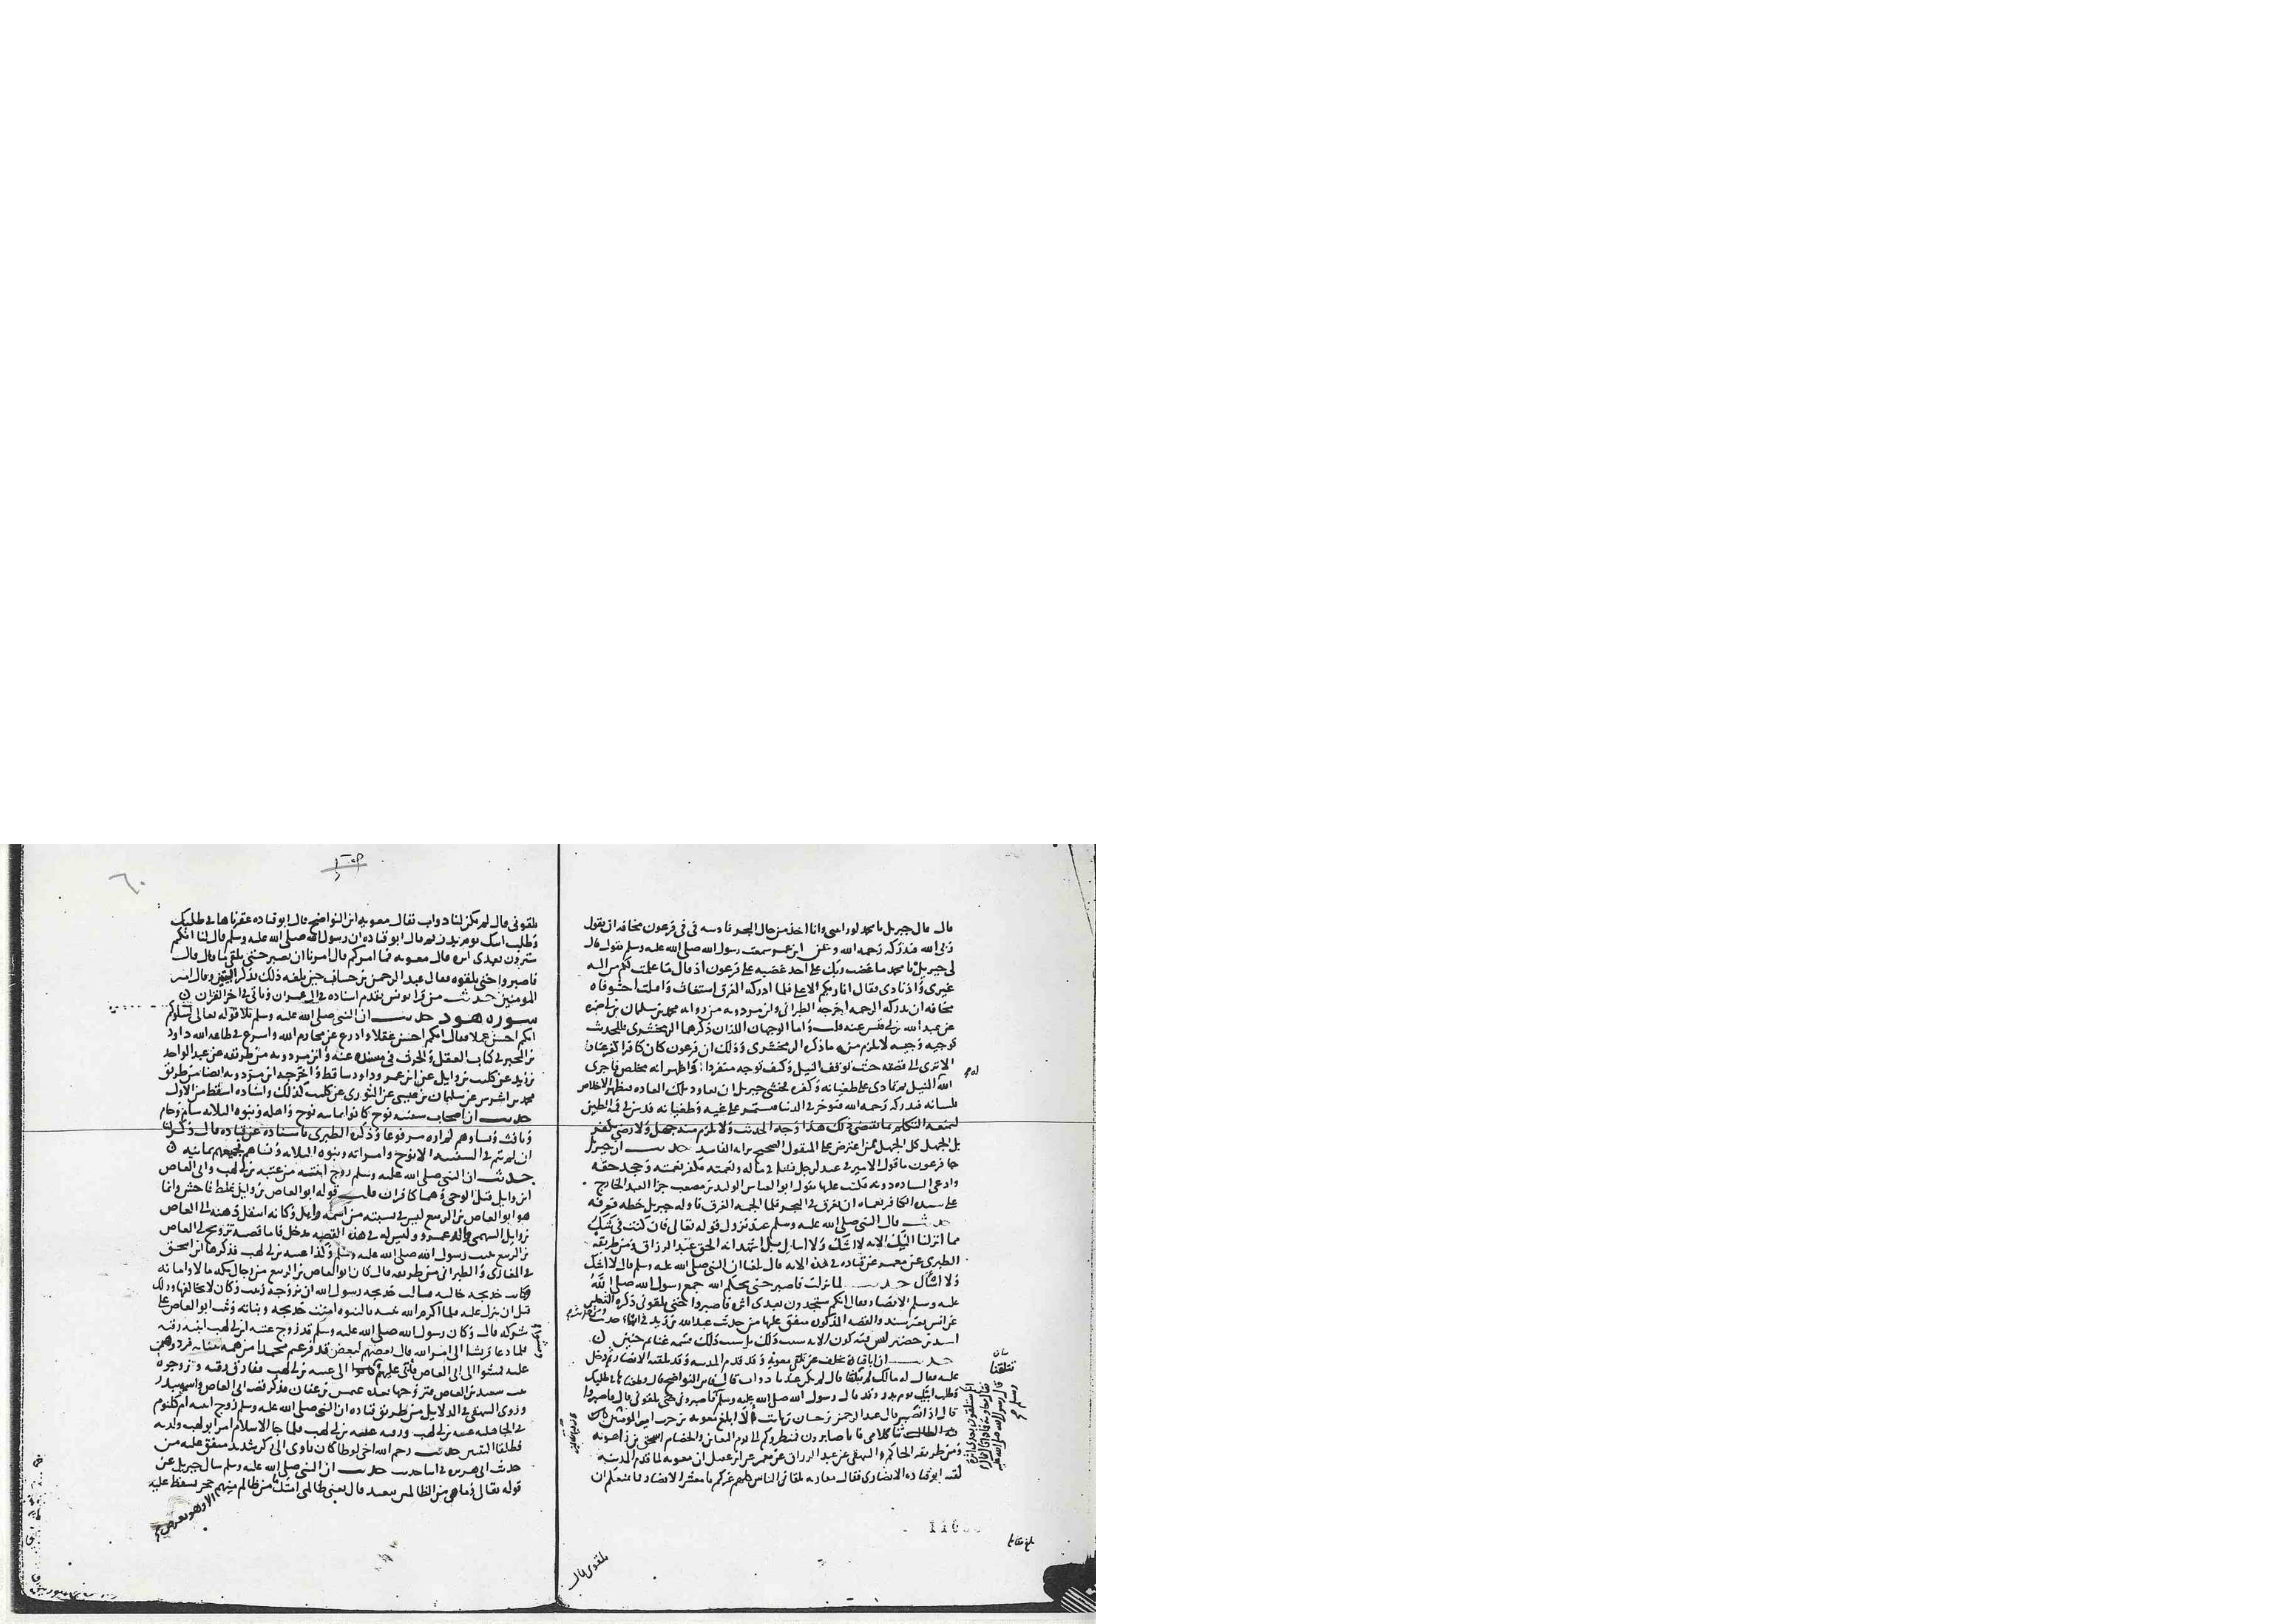 قال قال جبريل يا محمد لو رايتني وانا اخذ من حال البحر فادسه في في فرعون مخافه ان يقول
ربي الله فتدركه رحمه الله وعن ابن عمر سمعت رسول الله صلى الله عليه وسلم يقول قال
لي جبريل يا محمد ما غضب ربك على احد غضبه على فرعون اذ قال ما علمت لكم من اله
غيري واذ نادى فقال انا ربكم الاعلى فلما ادركه الغرق استغاث واقبلت احشو فاه
مخافه ان تدركه الرحمه اخرجه الطبراني وابن مردويه من روايه محمد بن سلمان بن
عن عبد الله بن ابي قيس عنه قلت واما الوجهان اللذان ذكرهما الزمخشري فللحديث
توجيه وجيه لا يلزم منه ما ذكره الزمخشري وذلك ان فرعون كان كافرا كفر عناد
الا ترى الى قصته حيث توقف النيل وكيف توجه منفردا واظهر انه مخلص فاجرى
الله النيل ثم تمادى على طغيانه وكفره فخشي جبريل ان يعاود تلك العاده فيظهر الاخلاص
بلسانه فتدركه رحمه الله فيؤخر في الدنيا فيستمر على غيه وطغيانه فدس في فمه الطين
ليمنعه التكلم بما يقتضي ذلك هذا وجه الحديث ولا يلزم منه جهل ولا رضى بكفر
بل الجهل كل الجهل ممن اعترض على المنقول الصحيح برايه الفاسد حديث ان جبريل
جا فرعون ما قول الامير في عبد لرجل نشا في ماله ونعمته فكفر نعمته وجحد حقه
وادعى السياده دونه فكتب عليها يقول ابو العباس الوليد بن مصعب جزا العبد الخارج
على سيده الكافر نعماه ان يغرق في البحر فلما الجمه الغرق ناوله جبريل خطه فعرفه
حديث قال النبي صلى الله عليه وسلم عند نزول قوله تعالى فان كنت في شك
مما انزلنا اليك الايه لا اشك ولا اسال بل اشهد انه الحق عبد الرزاق ومن طريقه
الطبري عن معمر عن قتاده في هذه الايه قال بلغنا ان النبي صلى الله عليه وسلم قال لا اشك
ولا اسال حديث لما نزلت فاصبر حتى يحكم الله جمع رسول الله صلى الله
عليه وسلم الانصار فقال انكم ستجدون بعدي اثره فاصبروا حتى تلقوني ذكره الثعلبي
عن انس بغير سند والقصه المذكوره متفق عليها من حديث عبد الله بن زيد حديث
اسيد بن حضير ليس فيه كون الايه سبب ذلك بل سبب ذلك قسمه غنايم حنين
حديث ان ابا قتاده تخلف عن تلقي معويه وقد قدم المدينه وقد تلقته الانصار ثم دخل
عليه فقال له مالك لم تلقنا قال لم يكن عندنا دواب قال فاين النواضح قال قطعناها في طلبك
وطلب ابيك يوم بدر وقد قال رسول الله صلى الله عليه وسلم فاصبروا حتى تلقوني قال فاصبروا
قال اذا نصبر فقال عبد الرحمن بن حسان الا ابلغ معويه بن حرب امير المومنين
نثا كلامي فانا صابرون فمنظروكم الى يوم التغابن والخصام اسحق بن راهويه
ومن طريقه الحاكم والبيهقي عن عبد الرزاق عن معمر عن ابن عقيل ان معويه لما قدم المدينه
لقيه ابو قتاده الانصاري فقال معاويه تلقاني الناس كلهم غيركم يا معشر الانصار فما منعكم ان
تلقوني قال
تلقوني قال لم يكن لنا دواب فقال معويه اين النواضح قال ابو قتاده عقرناها في طلبك
وطلب ابيك يوم بدر ثم قال ابو قتاده ان رسول الله صلى الله عليه وسلم قال لنا انكم
سترون بعدي اثره قال معويه فما امركم قال امرنا ان نصبر حتى نلقى قال
فاصبروا حتى تلقوه فقال عبد الرحمن بن حسان حين بلغه ذلك فذكر وقال امير
المومنين حديث من قرا يونس تقدم اسناده في ال عمران وياتي في اخر القران
سوره هود حديث ان النبي صلى الله عليه وسلم تلا قوله تعالى ليبلوكم
ايكم احسن عملا فقال ايكم احسن عقلا واورع عن محارم الله واسرع في طاعه الله داود
بن المحبر في كتاب العقل والحرث في مسنده عنه وابن مردويه من طريقه عن عبد الواحد
بن زيد عن كليب بن وايل عن ابن عمر وداود ساقط واخرجه ابن مردويه ايضا من طريق
محمد بن اشرس عن سلمان بن عيسى عن الثوري عن كليب كذلك واسناده اسقط من الاول
حديث ان اصحاب سفينه نوح كانوا ثمانيه نوح واهله وبنوه الثلاثه سام وحام
ويافث ونساوهم لم اره مرفوعا وذكره الطبري باسناده عن قتاده قال ذكر لنا
ان لم يتم في السفينه الا نوح وامراته وبنوه الثلاثه ونساهم فجميعهم ثمانيه
حديث ان النبي صلى الله عليه وسلم زوج ابنتيه من عتبه بن ابي لهب وابي العاص
ابن وايل قبل الوحي وهما كافران قلت قوله ابو العاص بن وايل غلط فاحش وانما
هو ابو العاص بن الربيع ليس في نسبته من اسمه وايل وكانه انتقل ذهنه الى العاص
بن وايل السهمي والد عمرو وليس له في هذه القصه مدخل فاما قصه تزويج ابي العاص
بن الربيع بنت رسول الله صلى الله عليه وسلم وكذا عتبه بن ابي لهب فذكرها ابن اسحق
في المغازي والطبراني من طريقه قال كان ابو العاص بن الربيع من رجال مكه مالا وامانه
وكانت خديجه خالته فسالت خديجه رسول الله ان يزوجه زينب وكان لا يخالفها وذلك
قبل ان ينزل عليه فلما اكرم الله نبيه بالنبوه امنت خديجه وبناته وثبت ابو العاص على
شركه قال وكان رسول الله صلى الله عليه وسلم قد زوج عتبه ابن ابي لهب ابنته رقيه
فلما دعا قريشا الى امر الله قال بعضهم لبعض قد فرغتم محمدا من همه ببناته فردوهن
عليه فمشوا الى ابي العاص فابى عليهم الى عتبه بن ابي لهب ففارق رقيه وزوجوه
بنت سعيد بن العاص فتزوجها بعده عثمن بن عفان فذكر قصه ابي العاص واسره ببدر
وروى البيهقي في الدلايل من طريق قتاده ان النبي صلى الله عليه وسلم زوج ابنته ام كلثوم
في الجاهليه عتيبه بن ابي لهب ورقيه عتبه بن ابي لهب فلما جا الاسلام امر ابو لهب ولديه
فطلقا ابنتيه حديث رحم الله اخي لوطا كان ياوي الى ركن شديد متفق عليه من
حديث ابي هريره في اثنا حديث حديث ان النبي صلى الله عليه وسلم سال جبريل عن
قوله تعالى وما هي من الظالمين ببعيد قال يعني ظالمي امتك ما من ظالم منهم
الا وهو بعرض حجر يسقط عليه